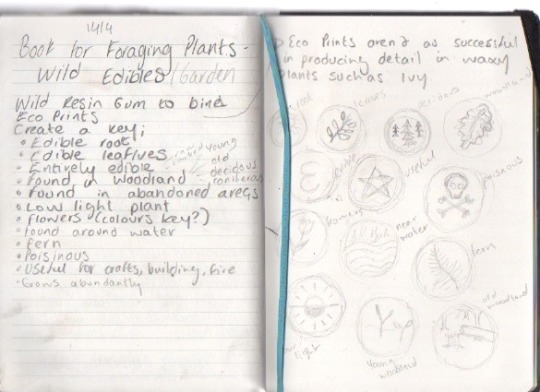 14/4
Book for Foraging Plants -
Wild Edibles/Garden
Wild Resin Gum to bind
Eco Prints
Create a key;
• Edible root
• Edible leaf/ves
• Entirely edible
• Found in woodland
young
old
decidous
coniferous
• Found in abandoned areas
• Low light plant
• Flowers (colours key?)
• found around water
• Fern
• Poisinous
• Useful for crafts, building, fire
• Grows abundantly
• Eco Prints aren't as successful
in producing detail in waxy
plants such as Ivy
leaves
decidous
woodland
edible
useful
poisnous
near
water
fern
light
young
woodland
old woodland